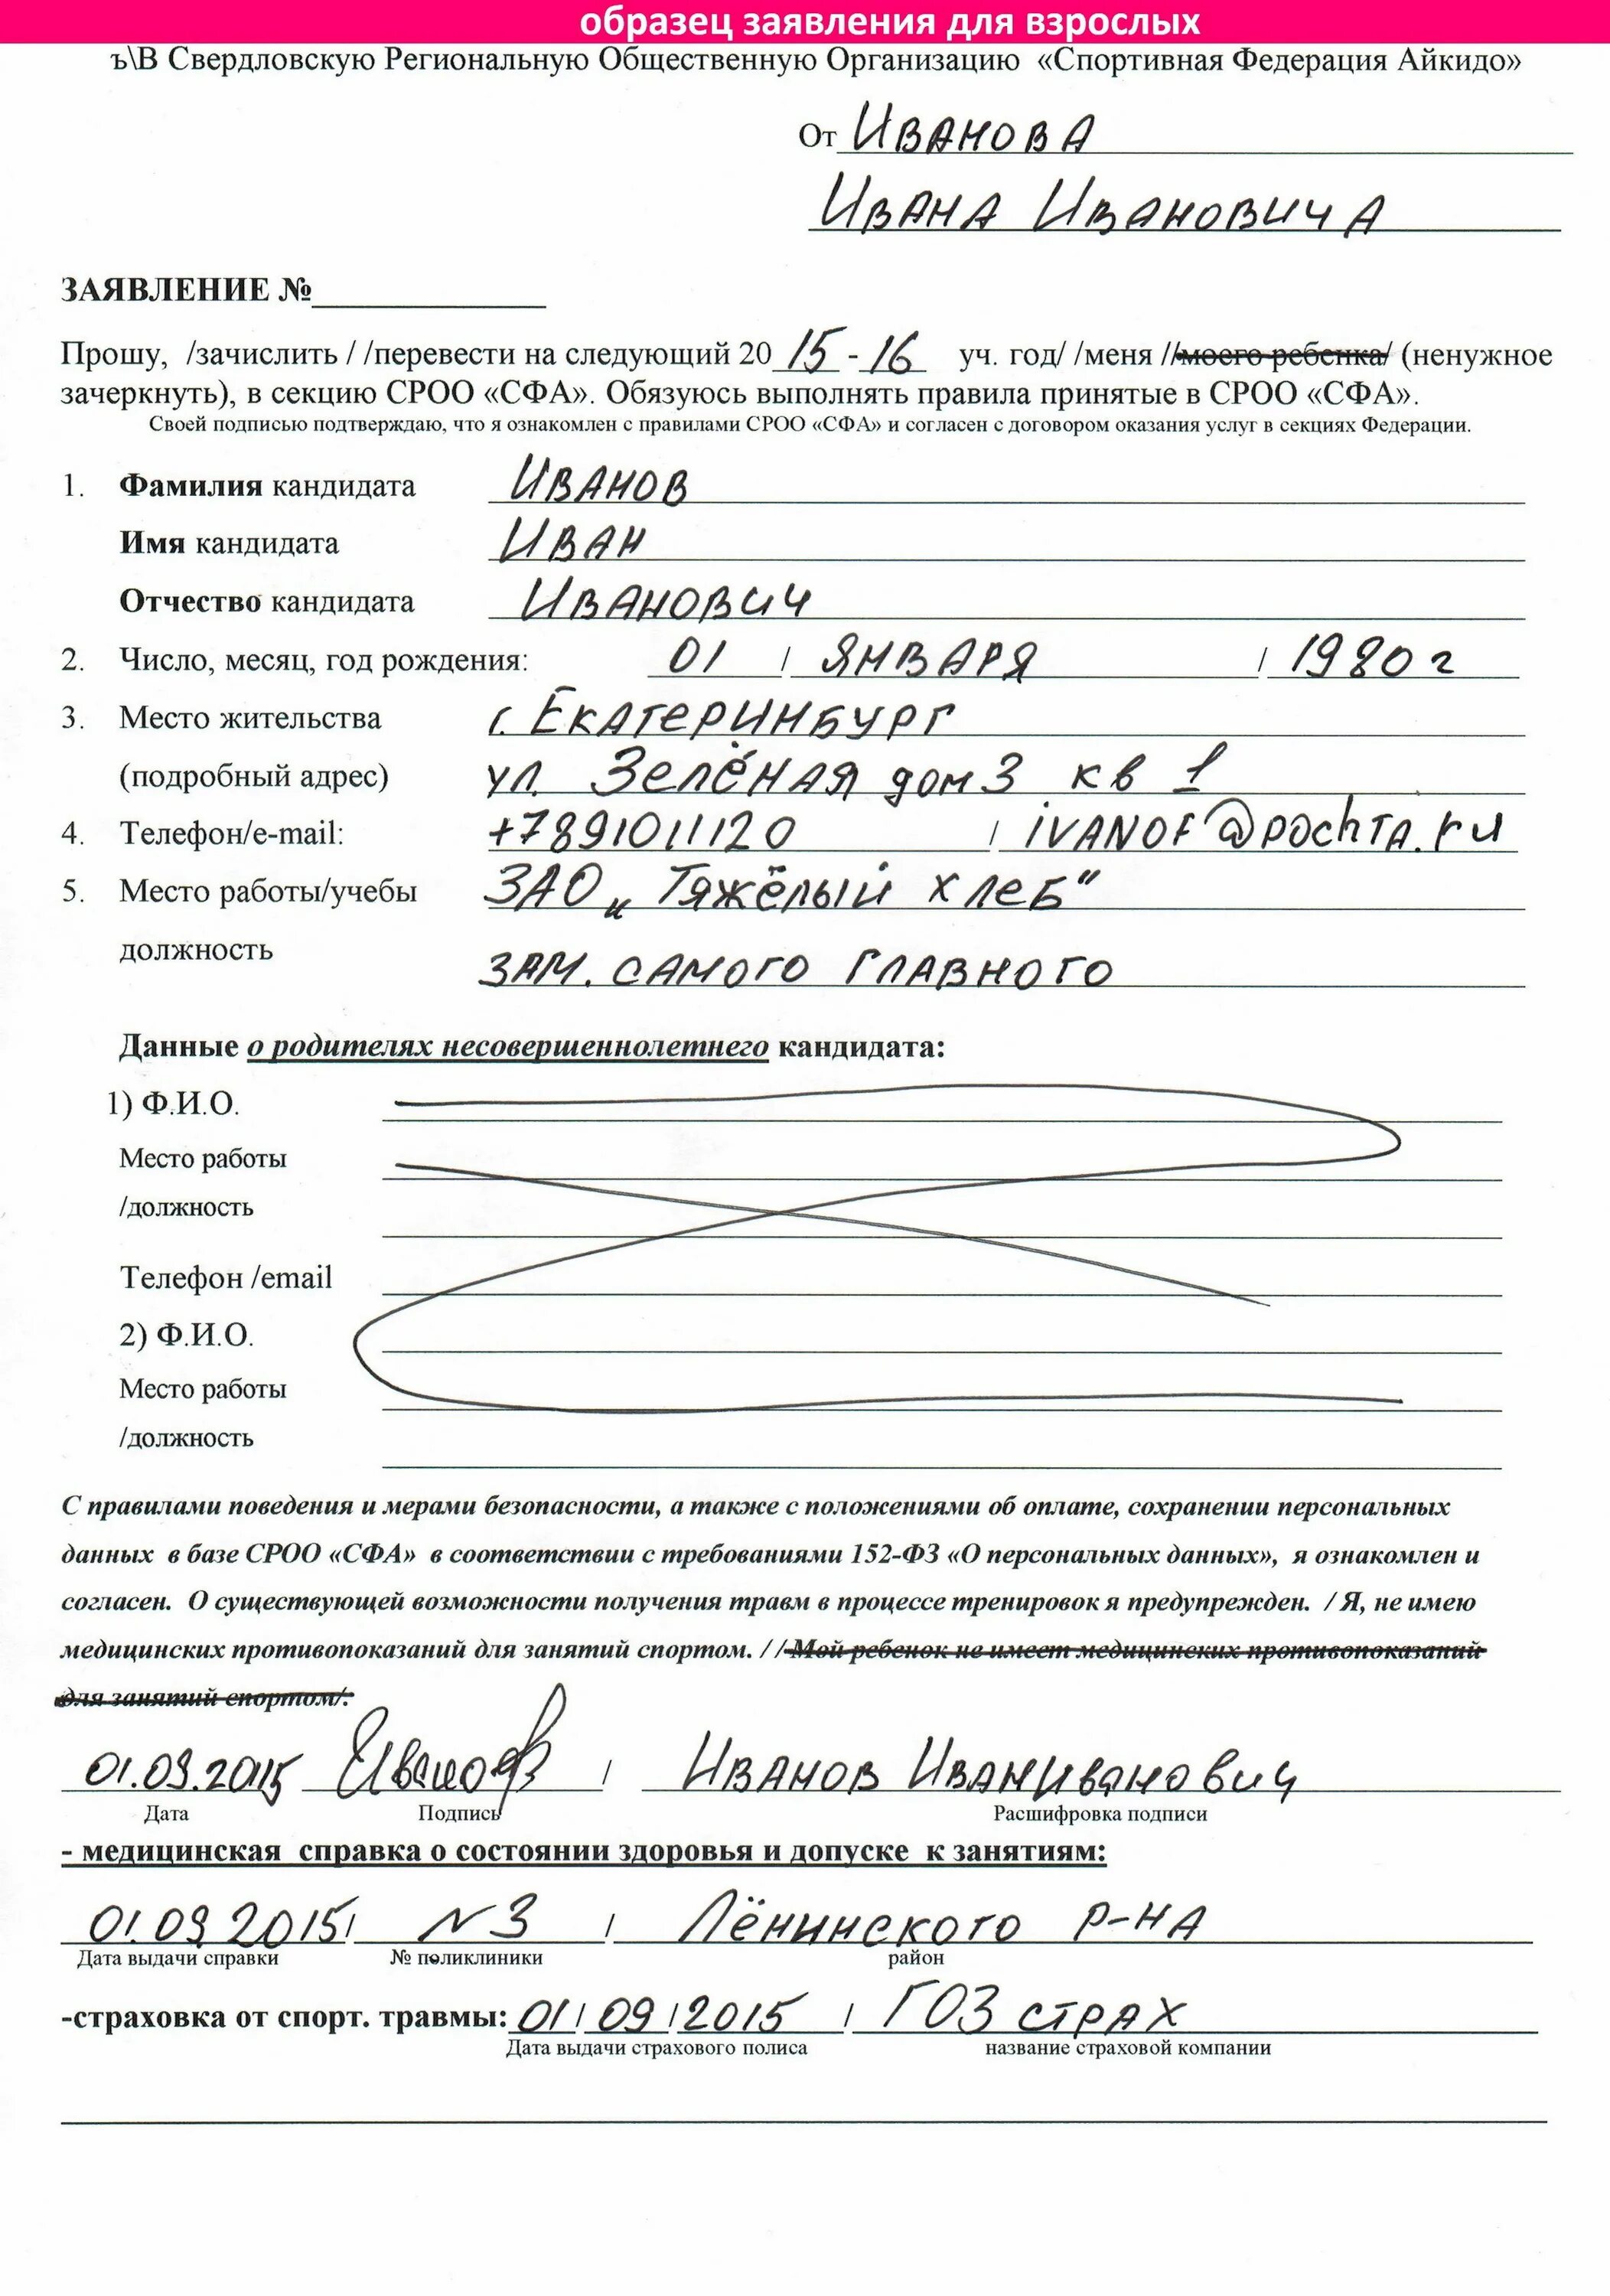 образец заявления для взрослых
ъ\В Свердловскую Региональную Общественную Организацию «Спортивная Федерация Айкидо»
От Иванова
Ивана Ивановича
ЗАЯВЛЕНИЕ №
Прошу, /зачислить / /перевести на следующий 20 15 - 16 уч. год/ /меня //моего ребенка/ (ненужное
зачеркнуть), в секцию СРОО «СФА». Обязуюсь выполнять правила принятые в СРОО «СФА».
Своей подписью подтверждаю, что я ознакомлен с правилами СРОО «СФА» и согласен с договором оказания услуг в секциях Федерации.
1. Фамилия кандидата Иванов
Имя кандидата Иван
Отчество кандидата Иванович
2. Число, месяц, год рождения: 01 / января / 1980 г
3. Место жительства г. Екатеринбург
(подробный адрес) ул. Зелёная дом 3 кв 1
4. Телефон/e-mail: +7891011120 / iVANOF@pochTA.ru
5. Место работы/учебы ЗАО „Тяжёлый хлеб"
должность зам. самого главного
Данные о родителях несовершеннолетнего кандидата:
1) Ф.И.О.
Место работы
/должность
Телефон /email
2) Ф.И.О.
Место работы
/должность
С правилами поведения и мерами безопасности, а также с положениями об оплате, сохранении персональных
данных в базе СРОО «СФА» в соответствии с требованиями 152-ФЗ «О персональных данных», я ознакомлен и
согласен. О существующей возможности получения травм в процессе тренировок я предупрежден. / Я, не имею
медицинских противопоказаний для занятий спортом. / /Мой ребенок не имеет медицинских противопоказаний
для занятий спортом/.
01.09.2015 Иванов / Иванов Иван Иванович
Дата Подпись Расшифровка подписи
- медицинская справка о состоянии здоровья и допуске к занятиям:
01.09 2015 / № 3 / Лёнинского р-на
Дата выдачи справки № поликлиники район
-страховка от спорт. травмы: 01 / 09 / 2015 / ГОЗ страх
Дата выдачи страхового полиса название страховой компании